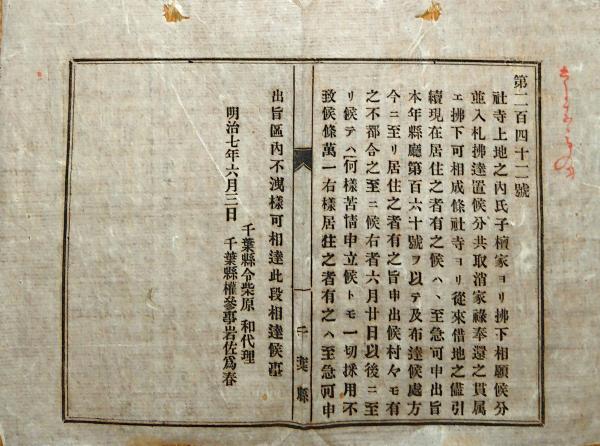 第二百四十二號
社寺上地之內氏子檀家ヨリ拂下相願候分
並入札拂達置候分共取消家祿奉還之貫屬
エ拂下可相成條社寺ヨリ從來借地之儘引
續現在居住之者有之候ハヽ至急可申出旨
本年縣廳第百六十號ヲ以テ及布達候處方
今ニ至リ居住之者有之旨申出候村々モ有
之不都合之至ニ候右者六月廿日以後ニ至
リ候テハ何樣苦情申立候トモ一切採用不
致候條萬一右樣居住之者有之ハ至急可申
千葉縣
出旨區內不洩樣可相達此段相達候事
明治七年六月三日
千葉縣令柴原 和代理
千葉縣權參事岩佐爲春